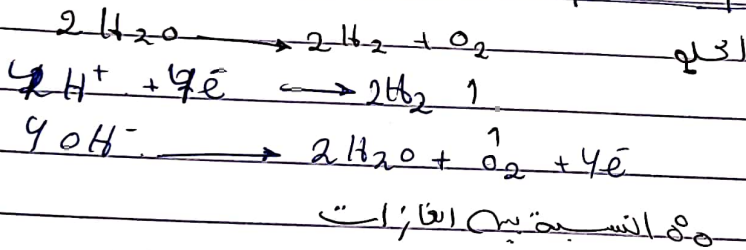 2H₂O → 2H₂ + O₂ الحلو
4H⁺ + 4e⁻ → 2H₂ ↑
4OH⁻ → 2H₂O + O₂ ↑ + 4e⁻
∞ النسبة بين الغازات